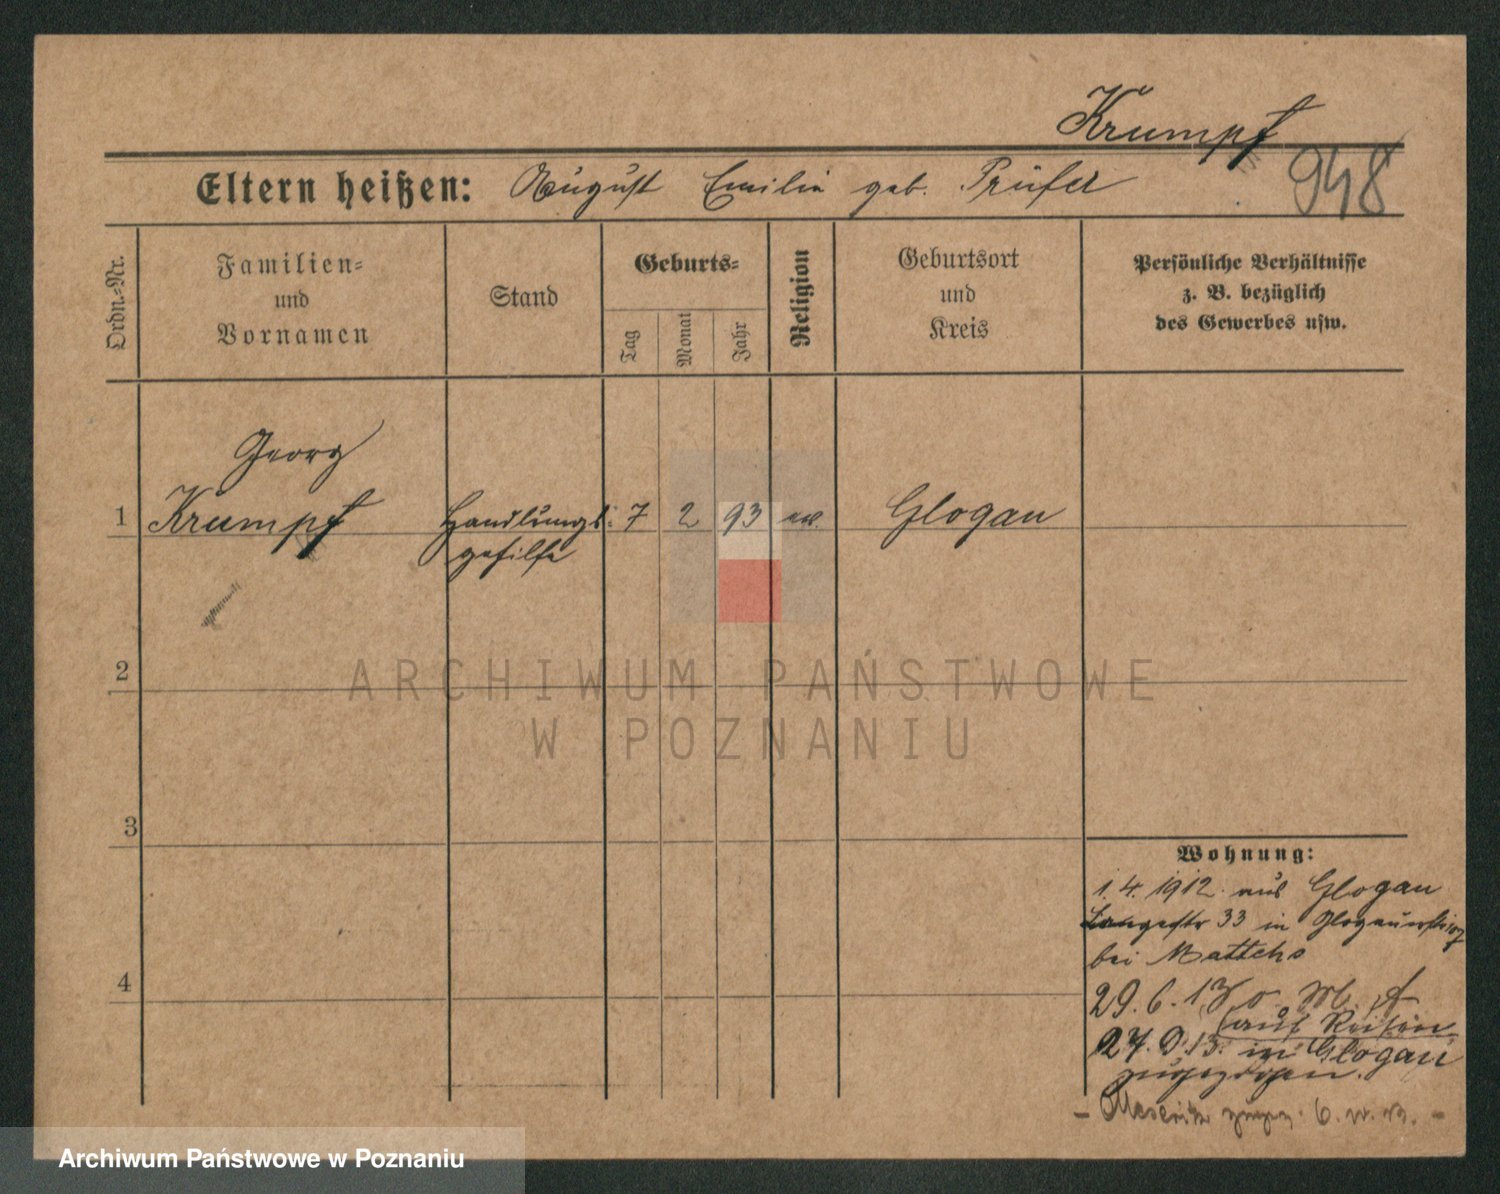 Krumpf
948
Eltern heißen: August Emilie geb. Prüfer
Ordn.-Nr.
Familien-
und
Vornamen
Stand
Geburts-
Tag
Monat
Jahr
Religion
Geburtsort
und
Kreis
Persönliche Verhältnisse
z. B. bezüglich
des Gewerbes usw.
Georg
1 Krumpf Handlungs- 7 2 93 ev. Glogau
gehilfe
2
ARCHIWUM PAŃSTWOWE
W POZNANIU
3
4
Wohnung:
1.4.1912. aus Glogau
Langestr 33 in
bei
29.6.13 o. M. A
(auf Reisen
27.9.13. in Glogau
zugezogen.
Archiwum Państwowe w Poznaniu